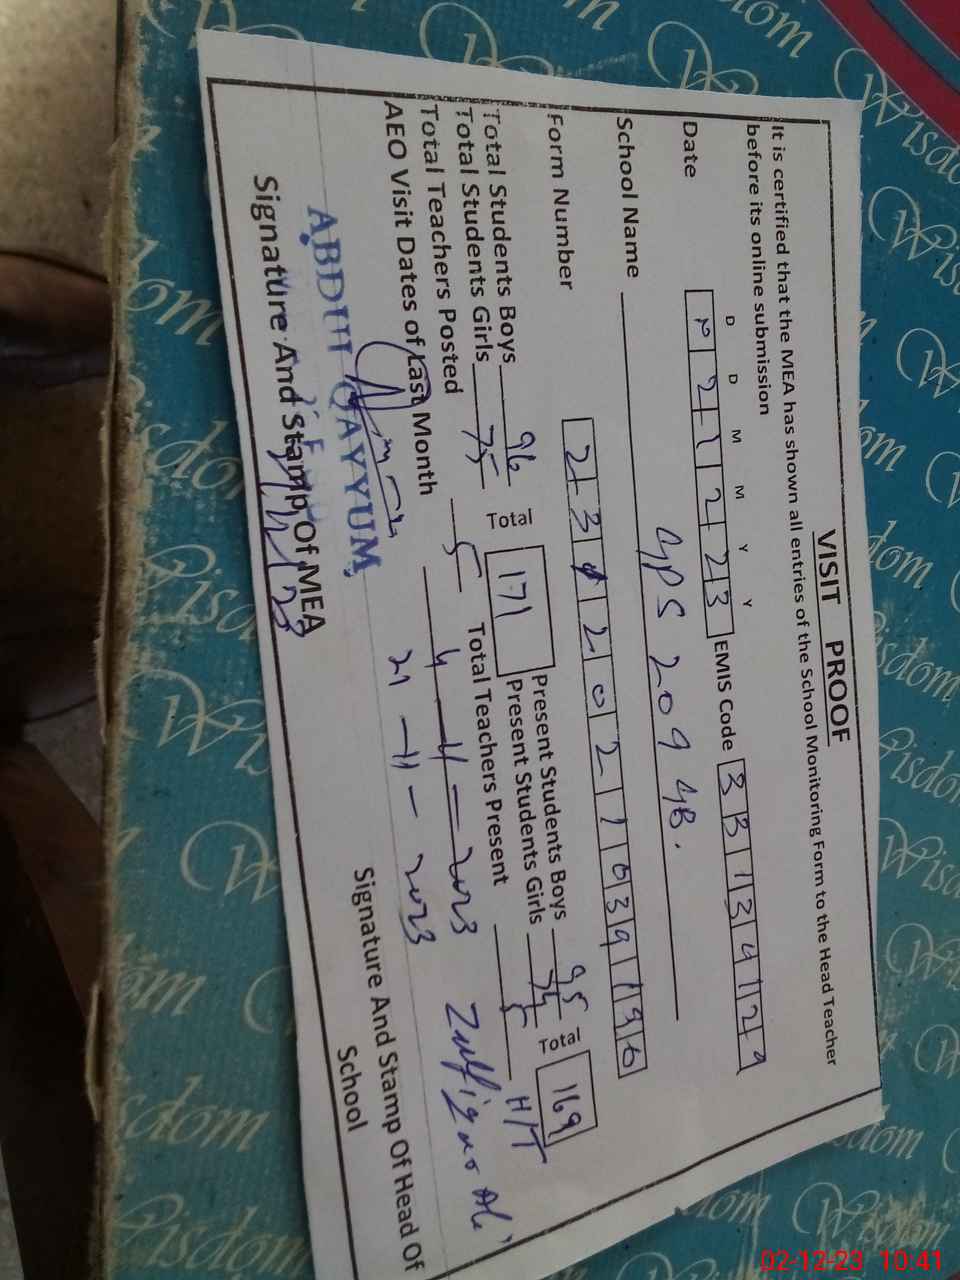 VISIT PROOF
It is certified that the MEA has shown all entries of the School Monitoring Form to the Head Teacher
before its online submission
D D M M Y Y
Date 2 1 2 2 3 EMIS Code 3 3 1 3 4 1 2 9
School Name GPS 209 GB.
Form Number 2 3 1 2 0 2 1 6 3 9 1 9 6
Total Students Boys 96 Total 171 Present Students Boys 95 Total 169
Total Students Girls 75 Present Students Girls 74
Total Teachers Posted 5 Total Teachers Present 5 H/T
AEO Visit Dates of Last Month 2023
21-11-2023
ABDUL QAYYUM
Signature And Stamp Of MEA
Signature And Stamp Of Head Of
School
Wisdom
02-12-23 10:41